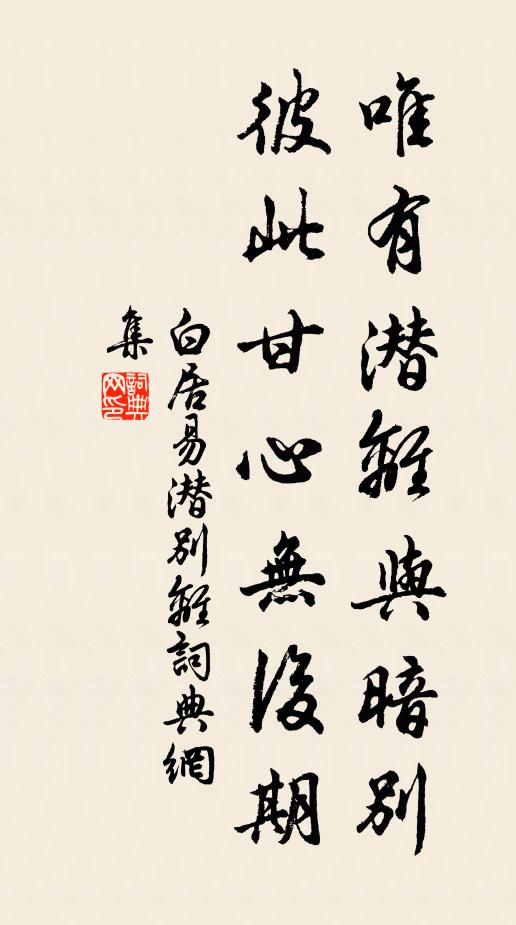 唯有潛離與暗別
彼此甘心無後期
白居易潛別離詞典網
集
詞典
网印